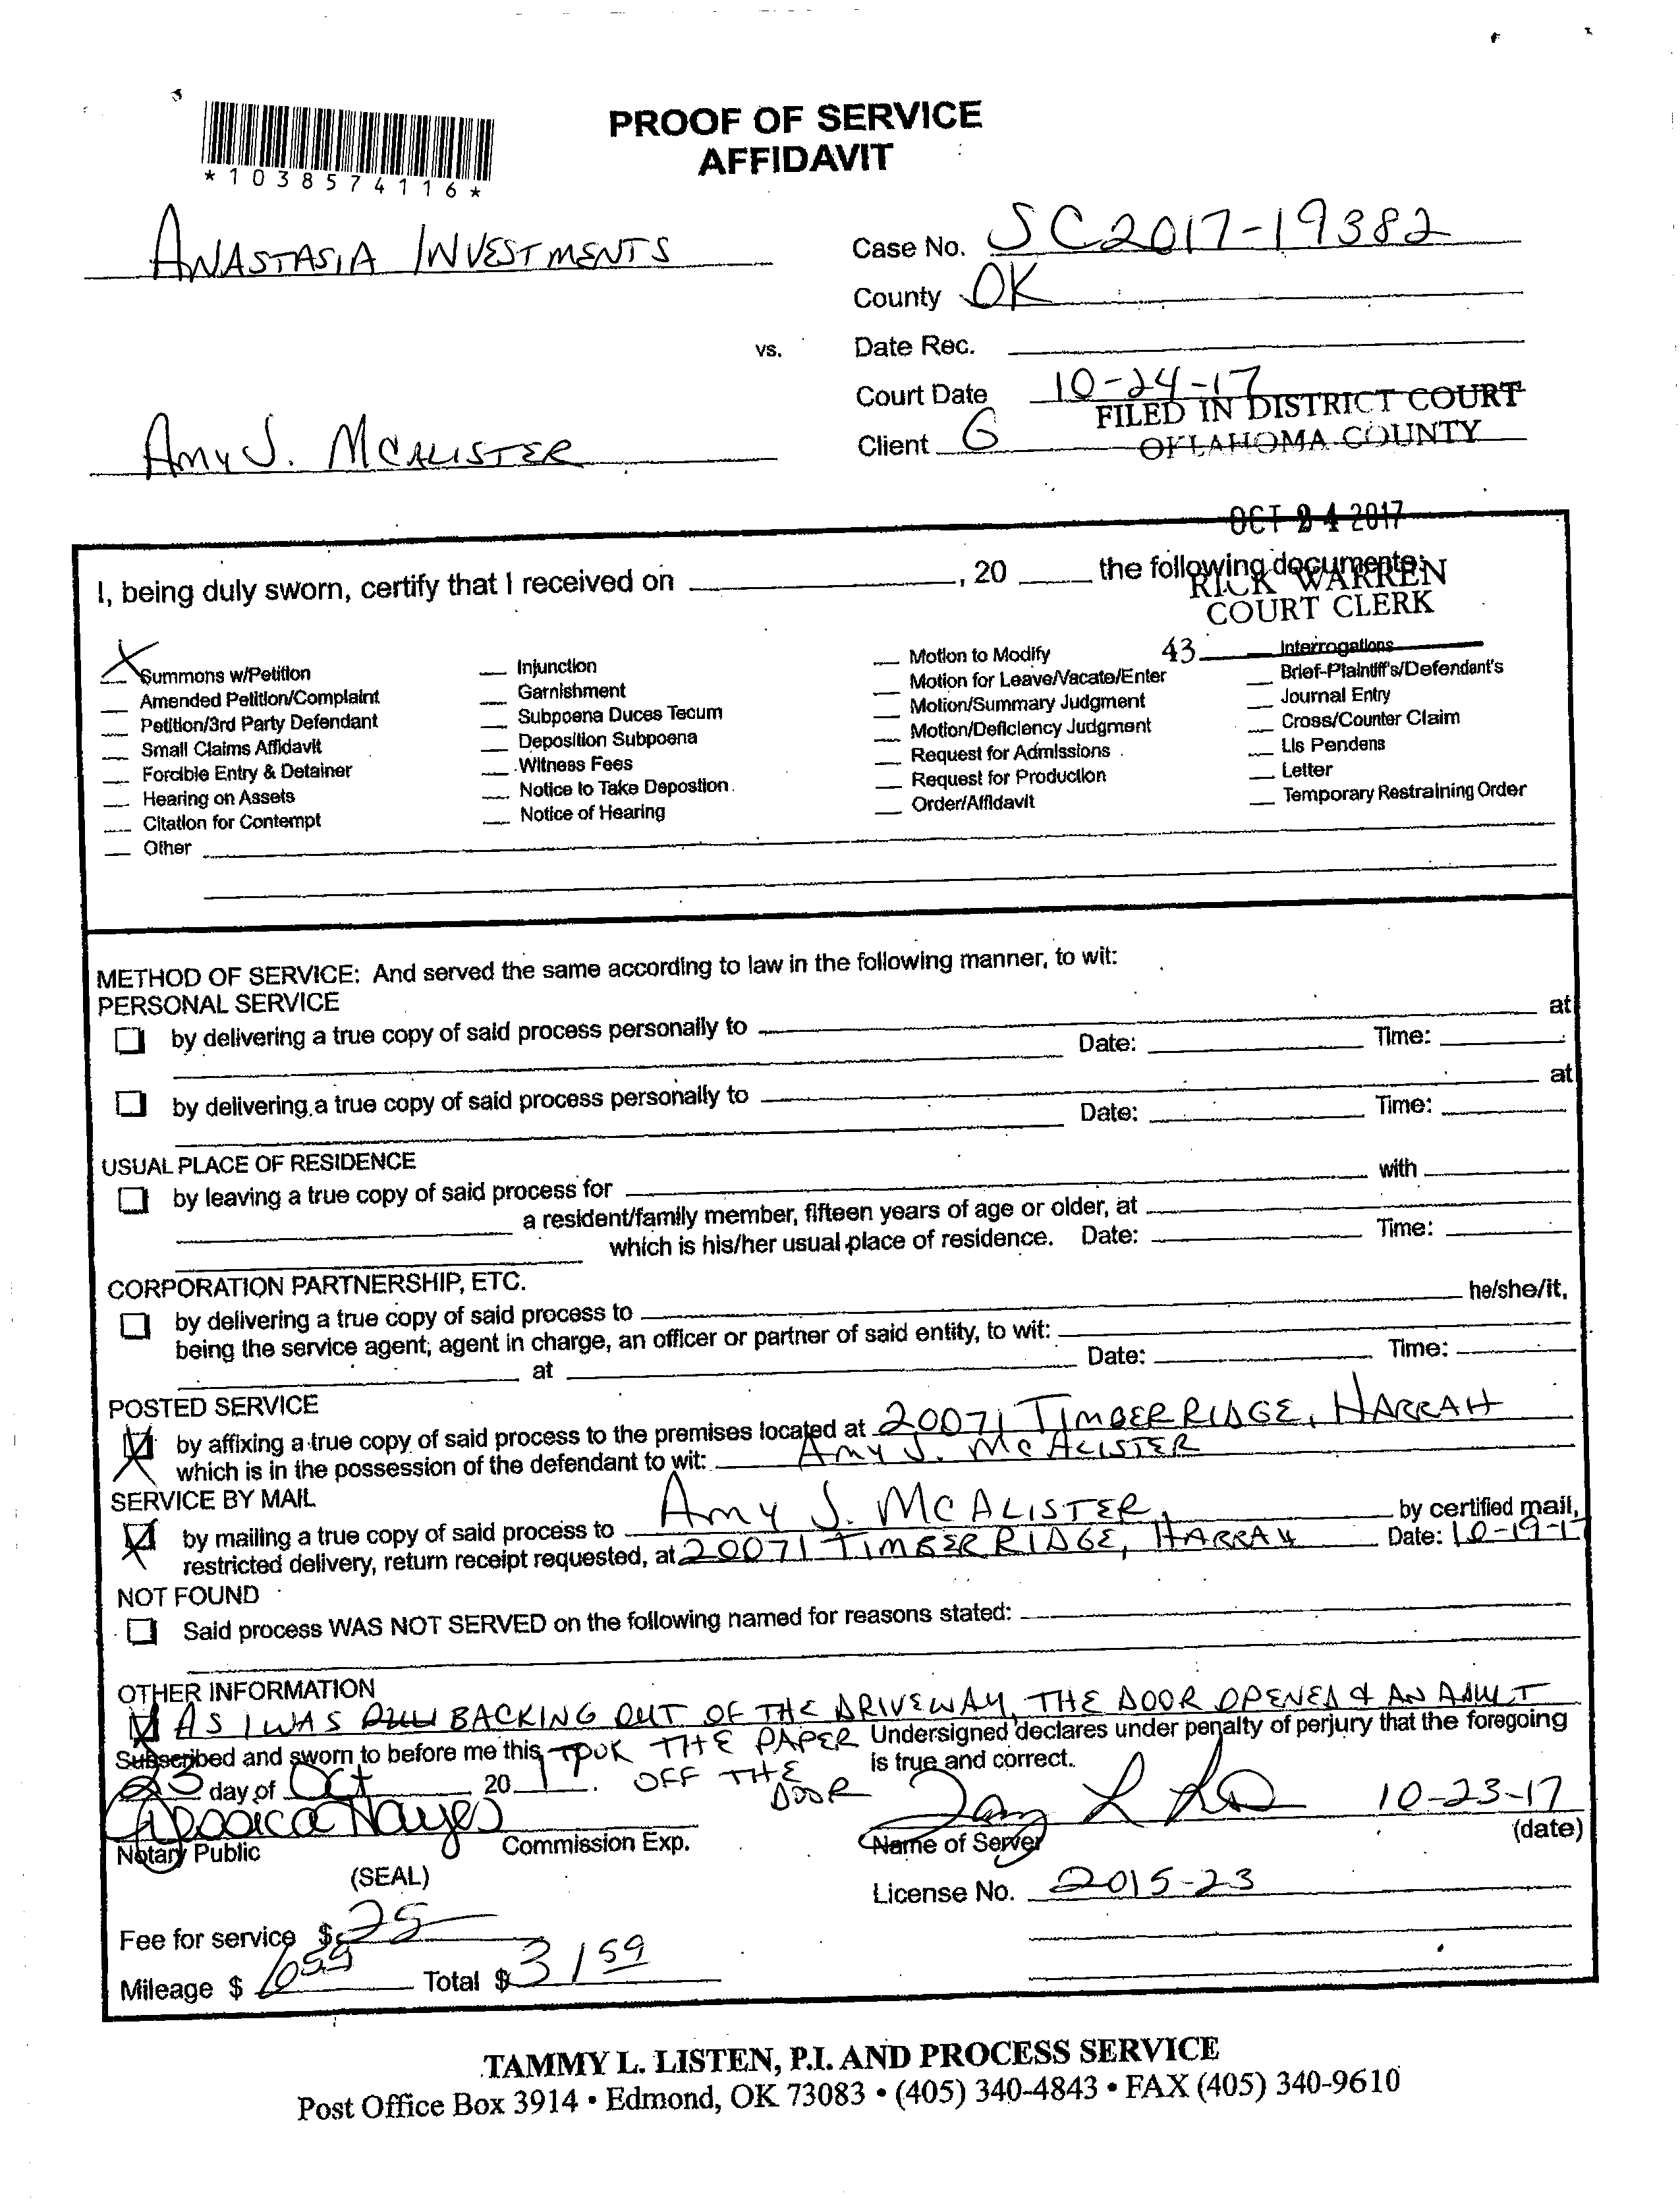 PROOF OF SERVICE
AFFIDAVIT
*1038574116*
ANASTASIA INVESTMENTS
Case No. SC2017-19382
County OK
vs.
Date Rec.
Court Date 10-24-17
FILED IN DISTRICT COURT
AMY J. MCALISTER
Client G
OKLAHOMA COUNTY
OCT 24 2017
I, being duly sworn, certify that I received on , 20 the following documents:
RICK WARREN
COURT CLERK
43
X Summons w/Petition
Amended Petition/Complaint
Petition/3rd Party Defendant
Small Claims Affidavit
Forcible Entry & Detainer
Hearing on Assets
Citation for Contempt
Other
Injunction
Garnishment
Subpoena Duces Tecum
Deposition Subpoena
Witness Fees
Notice to Take Depostion
Notice of Hearing
Motion to Modify
Motion for Leave/Vacate/Enter
Motion/Summary Judgment
Motion/Deficiency Judgment
Request for Admissions
Request for Production
Order/Affidavit
Interrogations
Brief-Plaintiff's/Defendant's
Journal Entry
Cross/Counter Claim
Lis Pendens
Letter
Temporary Restraining Order
METHOD OF SERVICE: And served the same according to law in the following manner, to wit:
PERSONAL SERVICE
by delivering a true copy of said process personally to at
Date: Time:
by delivering a true copy of said process personally to at
Date: Time:
USUAL PLACE OF RESIDENCE
by leaving a true copy of said process for with
a resident/family member, fifteen years of age or older, at
which is his/her usual place of residence. Date: Time:
CORPORATION PARTNERSHIP, ETC.
by delivering a true copy of said process to he/she/it,
being the service agent; agent in charge, an officer or partner of said entity, to wit:
at Date: Time:
POSTED SERVICE
by affixing a true copy of said process to the premises located at 20071 TIMBER RIDGE, HARRAH
which is in the possession of the defendant to wit: AMY J. MCALISTER
SERVICE BY MAIL
by mailing a true copy of said process to AMY J. MCALISTER by certified mail,
restricted delivery, return receipt requested, at 20071 TIMBER RIDGE, HARRAH Date: 10-19-17
NOT FOUND
Said process WAS NOT SERVED on the following named for reasons stated:
OTHER INFORMATION
AS I WAS BACKING OUT OF THE DRIVEWAY, THE DOOR OPENED & AN ADULT
TOOK THE PAPER
OFF THE
DOOR
Subscribed and sworn to before me this
23 day of Oct 2017.
Jessica Hayes
Notary Public Commission Exp.
(SEAL)
Undersigned declares under penalty of perjury that the foregoing
is true and correct.
10-23-17
Name of Server (date)
License No. 2015-23
Fee for service $ 25
Mileage $ 6.59 Total $ 31.59
TAMMY L. LISTEN, P.I. AND PROCESS SERVICE
Post Office Box 3914 • Edmond, OK 73083 • (405) 340-4843 • FAX (405) 340-9610